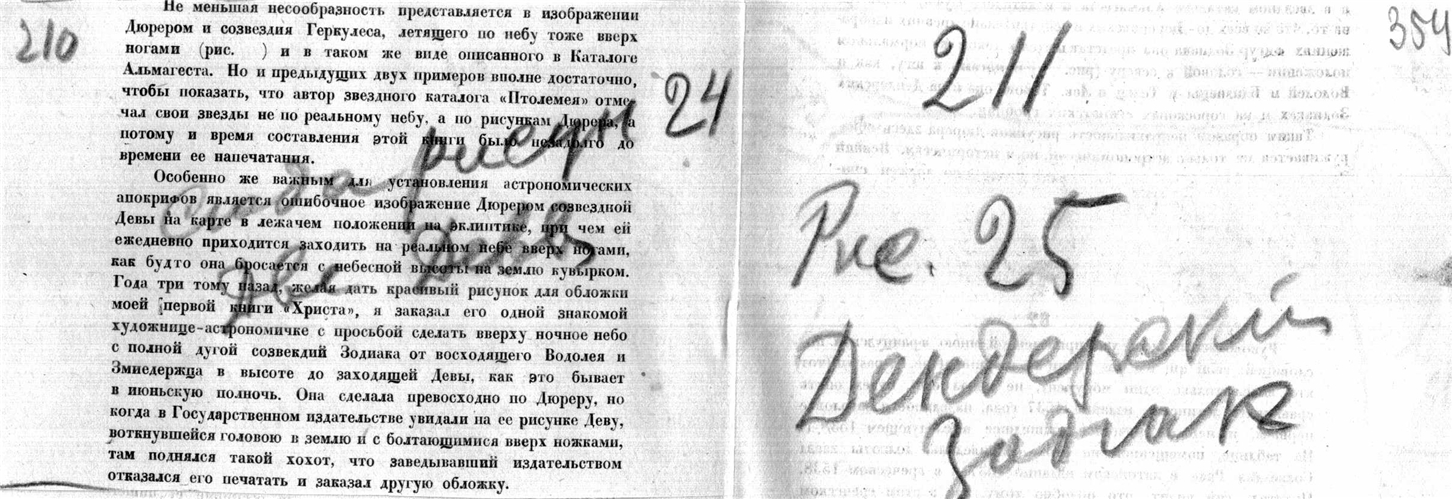 210
Не меньшая несообразность представляется в изображении
Дюрером и созвездия Геркулеса, летящего по небу тоже вверх
ногами (рис. ) и в таком же виде описанного в Каталоге
Альмагеста. Но и предыдущих двух примеров вполне достаточно,
чтобы показать, что автор звездного каталога «Птолемея» отме-
чал свои звезды не по реальному небу, а по рисункам Дюрера, а
потому и время составления этой книги было незадолго до
времени ее напечатания.
Особенно же важным для установления астрономических
апокрифов является ошибочное изображение Дюрером созвездной
Девы на карте в лежачем положении на эклиптике, при чем ей
ежедневно приходится заходить на реальном небе вверх ногами,
как будто она бросается с небесной высоты на землю кувырком.
Года три тому назад, желая дать красивый рисунок для обложки
моей первой книги «Христа», я заказал его одной знакомой
художнице-астрономичке с просьбой сделать вверху ночное небо
с полной дугой созвекдий Зодиака от восходящего Водолея и
Змиедержца в высоте до заходящей Девы, как это бывает
в июньскую полночь. Она сделала превосходно по Дюреру, но
когда в Государственном издательстве увидали на ее рисунке Деву,
воткнувшейся головою в землю и с болтающимися вверх ножками,
там поднялся такой хохот, что заведывавший издательством
отказался его печатать и заказал другую обложку.
сюда рисун
24
две Девы
211
354
Рис. 25
Дендерский
Зодиак